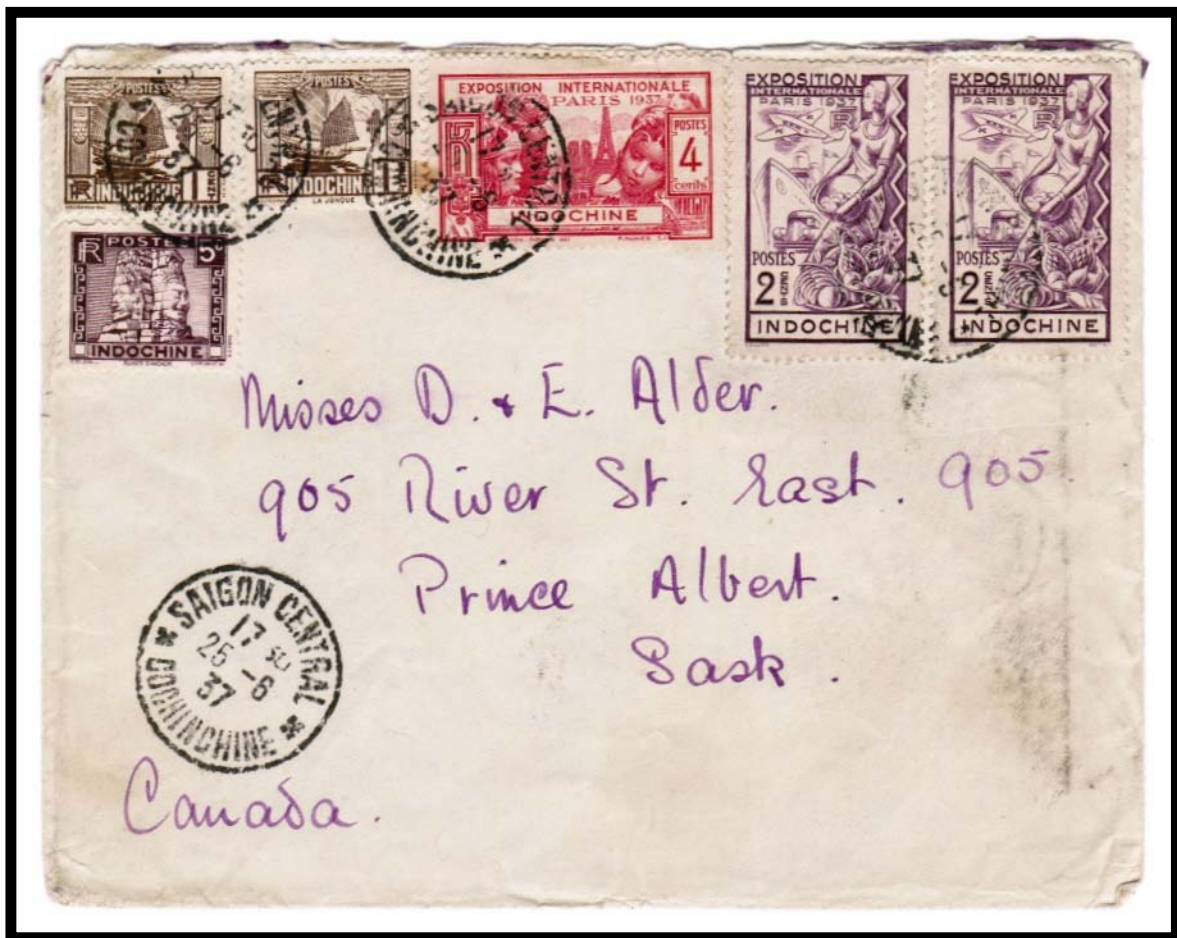 POSTES
INDOCHINE 1 CENT
POSTES
INDOCHINE 1
LA JONQUE
EXPOSITION INTERNATIONALE
PARIS 1937
POSTES
4
cents
INDOCHINE
EXPOSITION
INTERNATIONALE
PARIS 1937
RF
POSTES
2
CENTS
INDOCHINE
EXPOSITION
INTERNATIONALE
PARIS 1937
RF
POSTES
2
CENTS
INDOCHINE
RF POSTES 5
INDOCHINE
Misses D. & E. Alder.
905 River St. East. 905
Prince Albert.
Sask.
SAIGON CENTRAL
17 30
25 -6
37
COCHINCHINE
Canada.